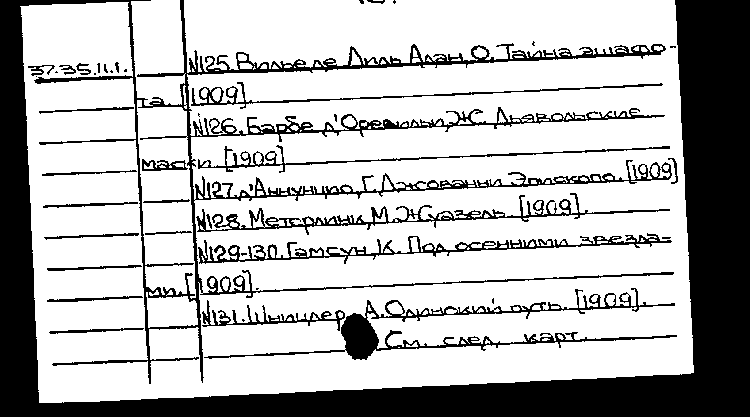 37.35.11.1. №125. Вилье де Лиль Адан, О. Тайна эшафо-
та. [1909].
№126. Барбе д'Оревильи, Ж. Дьявольские
маски. [1909]
№127. д'Аннунцио, Г. Джованни Эпископо. [1909]
№128. Метерлинк, М. Жуазель. [1909].
№129-130. Гамсун, К. Под осенними звезда=
ми. [1909].
№131. Шницлер, А. Одинокий путь. [1909].
См. след. карт.